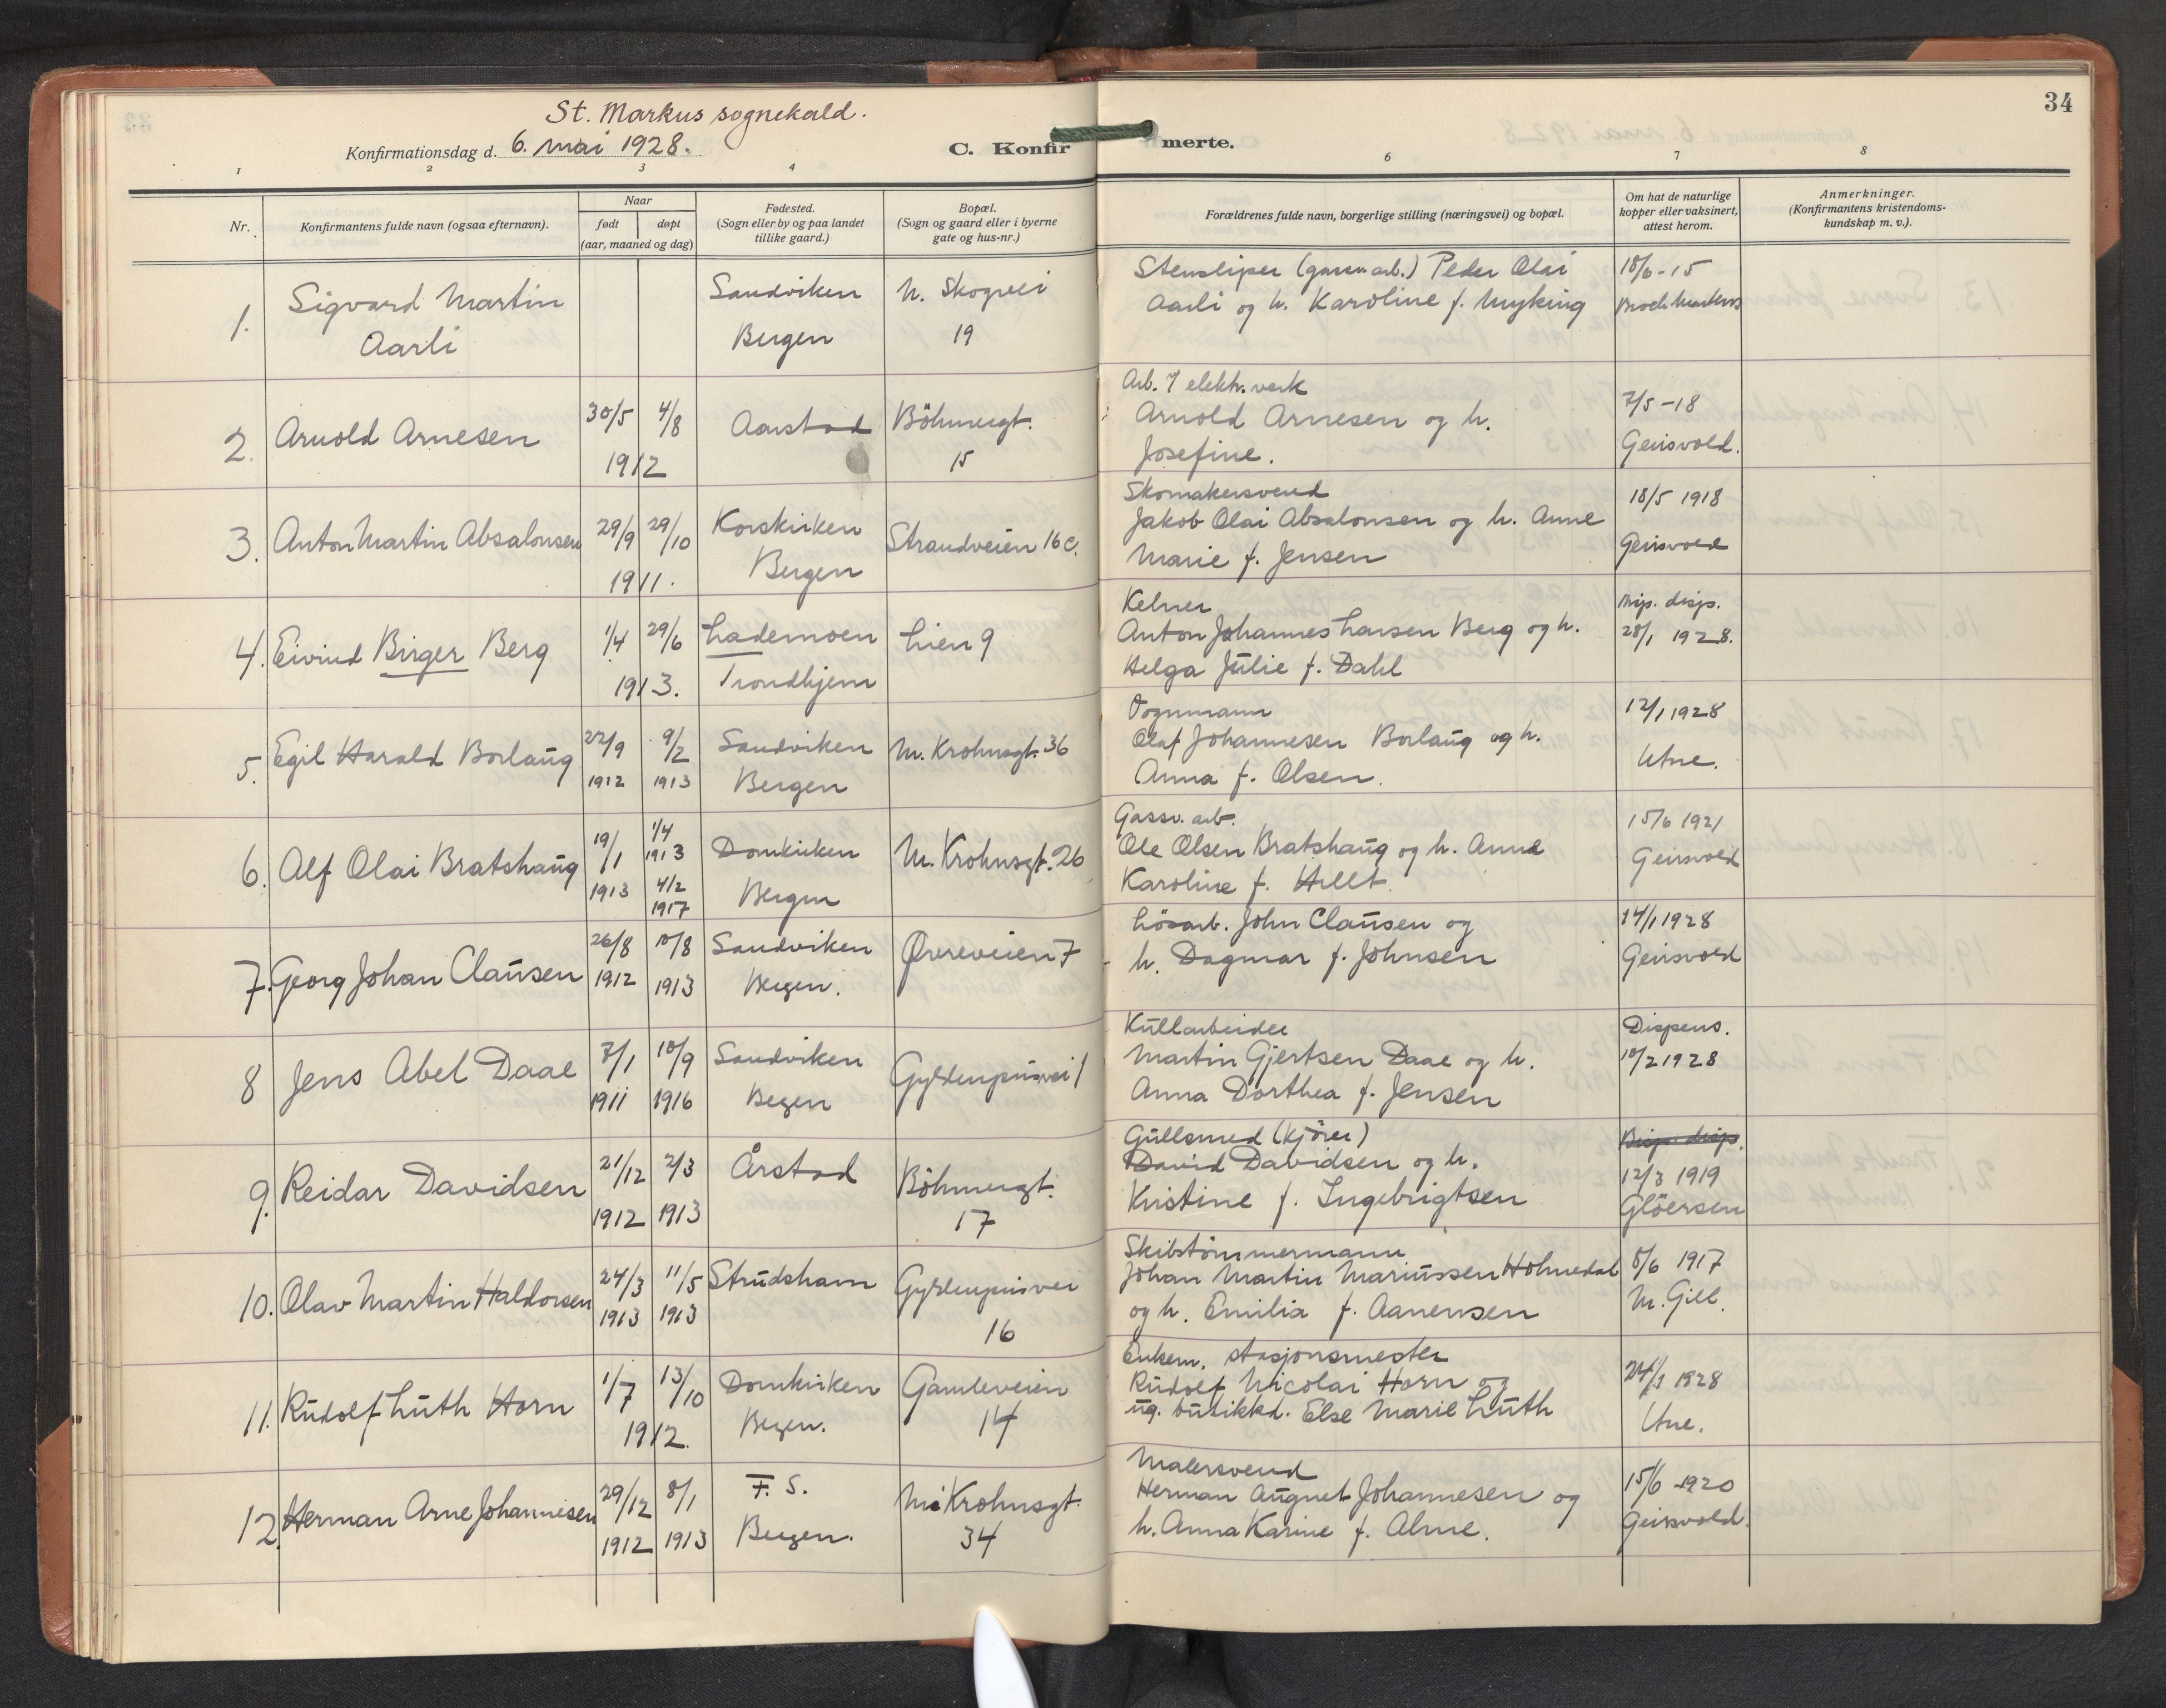 St. Markus sognekald.
34
Konfirmationsdag d. 6. mai 1928.
C. Konfirmerte.
1 2 3 4 6 7 8
Nr.
Konfirmantens fulde navn (ogsaa efternavn).
Naar
født døpt
(aar, maaned og dag)
Fødested.
(Sogn eller by og paa landet
tillike gaard.)
Bopæl.
(Sogn og gaard eller i byerne
gate og hus-nr.)
Forældrenes fulde navn, borgerlige stilling (næringsvei) og bopæl.
Om hat de naturlige
kopper eller vaksinert,
attest herom.
Anmerkninger.
(Konfirmantens kristendoms-
kundskap m. v.).
1. Sigvard Martin
Aarli
Sandviken
Bergen
N. Skogvei
19
Stensliper (gassv. arb.) Peder Olai
Aarli og h. Karoline f. Myking
18/6 - 15
Broch Martens
2. Arnold Arnesen
30/5 4/8
1912
Aarstad
Böhmergt.
15
Arb. v elektr. verk
Arnold Arnesen og h.
Josefine.
7/5 - 18
Geirsvold.
3. Anton Martin Absalonsen
29/9 29/10
1911.
Korskirken
Bergen
Strandveien 16 c.
Skomakersvend
Jakob Olai Absalonsen og h. Anne
Marie f. Jensen
18/5 1918
Geirsvold
4. Eivind Birger Berg
1/4 29/6
1913.
Lademoen
Trondhjem
Lien 9
Kelner
Anton Johannes Larsen Berg og h.
Helga Julie f. Dahl
Bisp. disp.
28/1 1928.
5. Egil Harald Borlaug
22/9 9/2
1912 1913
Sandviken
Bergen
M. Krohnsgt. 36
Vognmann
Olaf Johannesen Borlaug og h.
Anna f. Olsen.
12/1 1928
Utne.
6. Alf Olai Bratshaug
19/1 1/4
1913
1913 4/2
1917
Domkirken
Bergen
M. Krohnsgt. 26
Gassv. arb.
Ole Olsen Bratshaug og h. Anne
Karoline f. Hillt.
15/6 1921
Geirsvold
7. Georg Johan Clausen
26/8 10/8
1912 1913
Sandviken
Bergen.
Øvreveien 7
Løsarb. John Clausen og
h. Dagmar f. Johnsen
14/1 1928
Geirsvold
8 Jens Abel Daae
7/1 10/9
1911 1916
Sandviken
Bergen
Gyldenprisvei 1
Kullarbeider
Martin Gjertsen Daae og h.
Anna Dorthea f. Jensen
Dispens.
10/2 1928
9. Reidar Davidsen
21/12 2/3
1912 1913
Årstad
Böhmergt.
17
Gullsmed (kjörer)
David Davidsen og h.
Kristine f. Ingebrigtsen
Bisp. disp.
12/3 1919
Glöersen
10. Olav Martin Haldorsen
24/3 11/5
1913 1913
Strudshavn
Gyldenprisvei
16
Skibstömmermann
Johan Martin Mariussen Holmedal
og h. Emilia f. Aanensen
8/6 1917
M. Gill.
11. Rudolf Luth Horn
1/7 13/10
1912.
Domkirken
Bergen.
Gamleveien
14
Enkem. stasjonsmester
Rudolf Nicolai Horn og
ug. butikkd. Else Marie Luth
24/1 1928
Utne.
12. Herman Arne Johannesen
29/12 8/1
1912 1913
F. S.
Bergen.
M. Krohnsgt.
34
Malersvend
Herman August Johannesen og
h. Anna Karine f. Alme.
15/6 1920
Geirsvold.